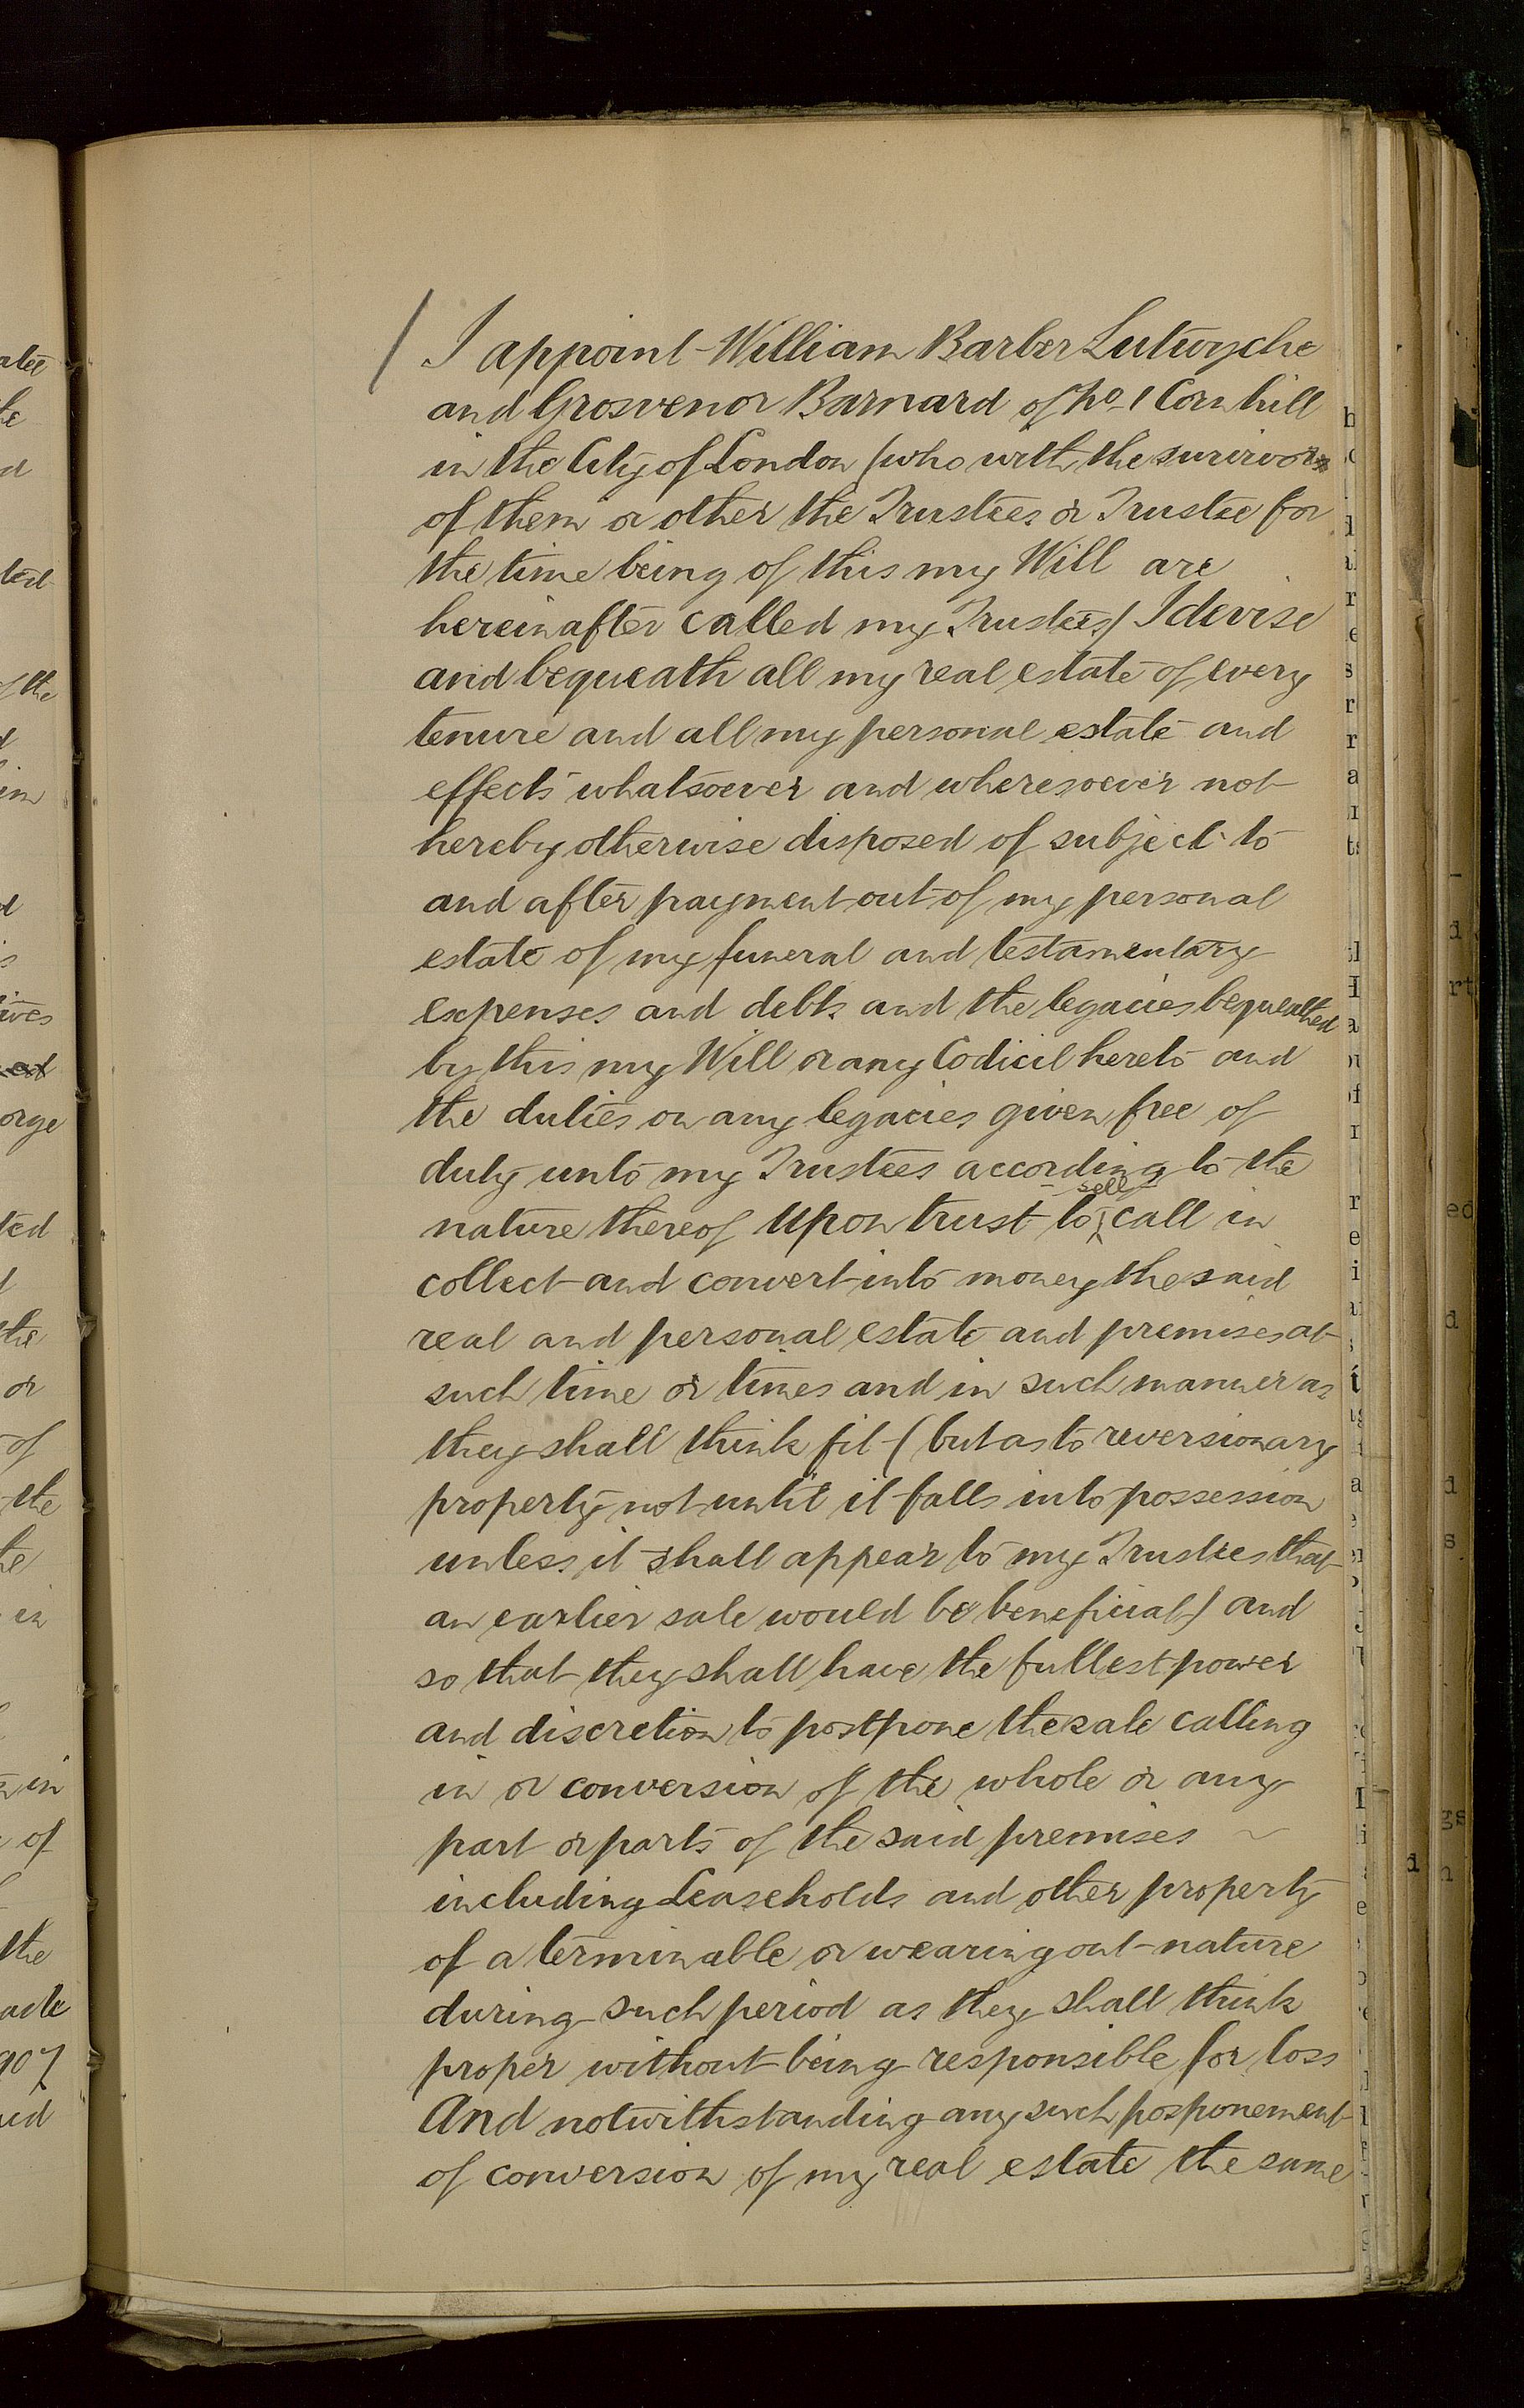 I appoint William Barber Lutwyche
and Grosvenor Barnard of No 1 Cornhill
in the City of London (who with the survivor
of them or other the Trustees or Trustee for
the time being of this my Will are
hereinafter called my Trustees) I devise
and bequeath all my real estate of every
tenure and all my personal estate and
effects whatsoever and wheresoever not
hereby otherwise disposed of subject to
and after payment out of my personal
estate of my funeral and testamentary
expenses and debts and the legacies bequeathed
by this my Will or any Codicil hereto and
the duties on any legacies given free of
duty unto my Trustees according to the
nature thereof Upon trust to sell call in
collect and convert into money the said
real and personal estate and premises at
such time or times and in such manner as
they shall think fit (but as to reversionary
property not until it falls into possession
unless it shall appear to my Trustees that
an earlier sale would be beneficial) and
so that they shall have the fullest power
and discretion to postpone the sale calling
in or conversion of the whole or any
part or parts of the said premises ~
including Leaseholds and other property
of a terminable or wearing out nature
during such period as they shall think
proper without being responsible for loss
And notwithstanding any such posponement
of conversion of my real estate the same